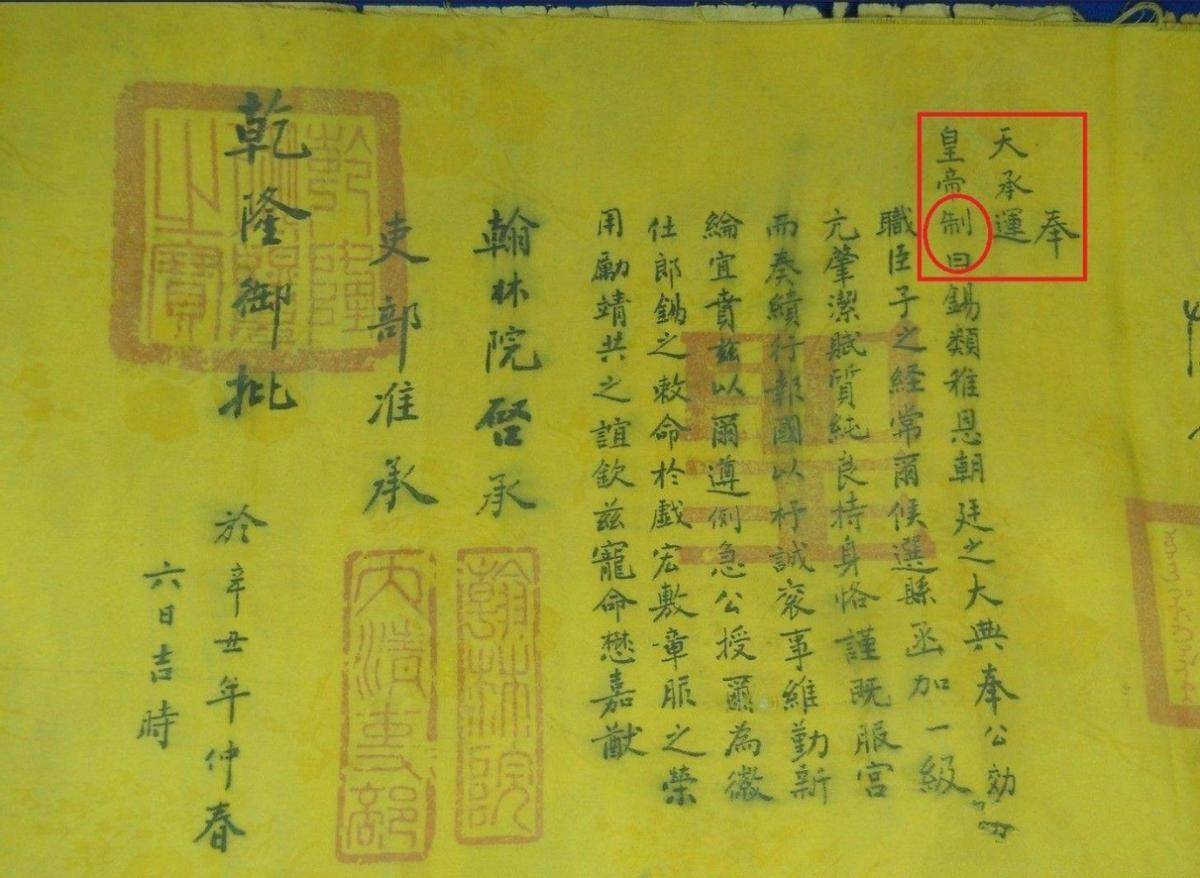 奉
天承運
皇帝制曰錫類稚恩朝廷之大典奉公効
職臣子之経常爾候選縣丞加一級
亢肇潔賦質純良持身恪謹既服宮
而奏績行報國以杼誠衮事維勤新
綸宜賁兹以爾遵例急公授爾為徽
仕郎錫之敕命於戲宏敷章服之榮
用勵靖共之誼欽兹寵命懋嘉猷
翰林院啓承
翰林院
吏部准承
大清吏部
乾隆御批
於辛丑年仲春
六日吉時